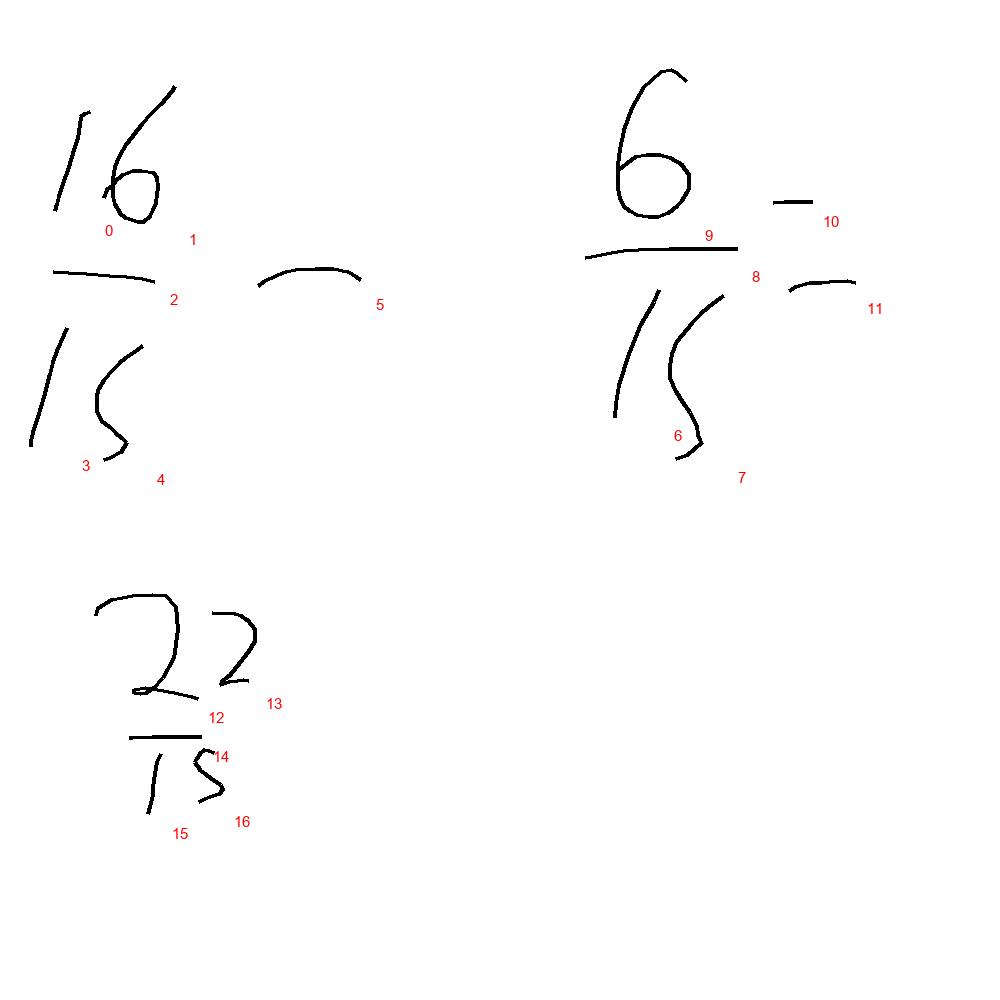 16/15 - 6/15 =
22/15
0 1 2 3 4 5 6 7 8 9 10 11 12 13 14 15 16